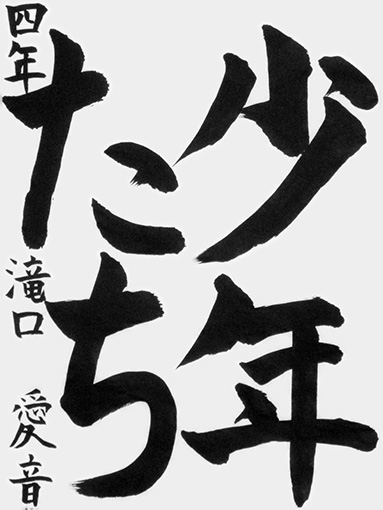 少年
たち
四年 滝口 愛音